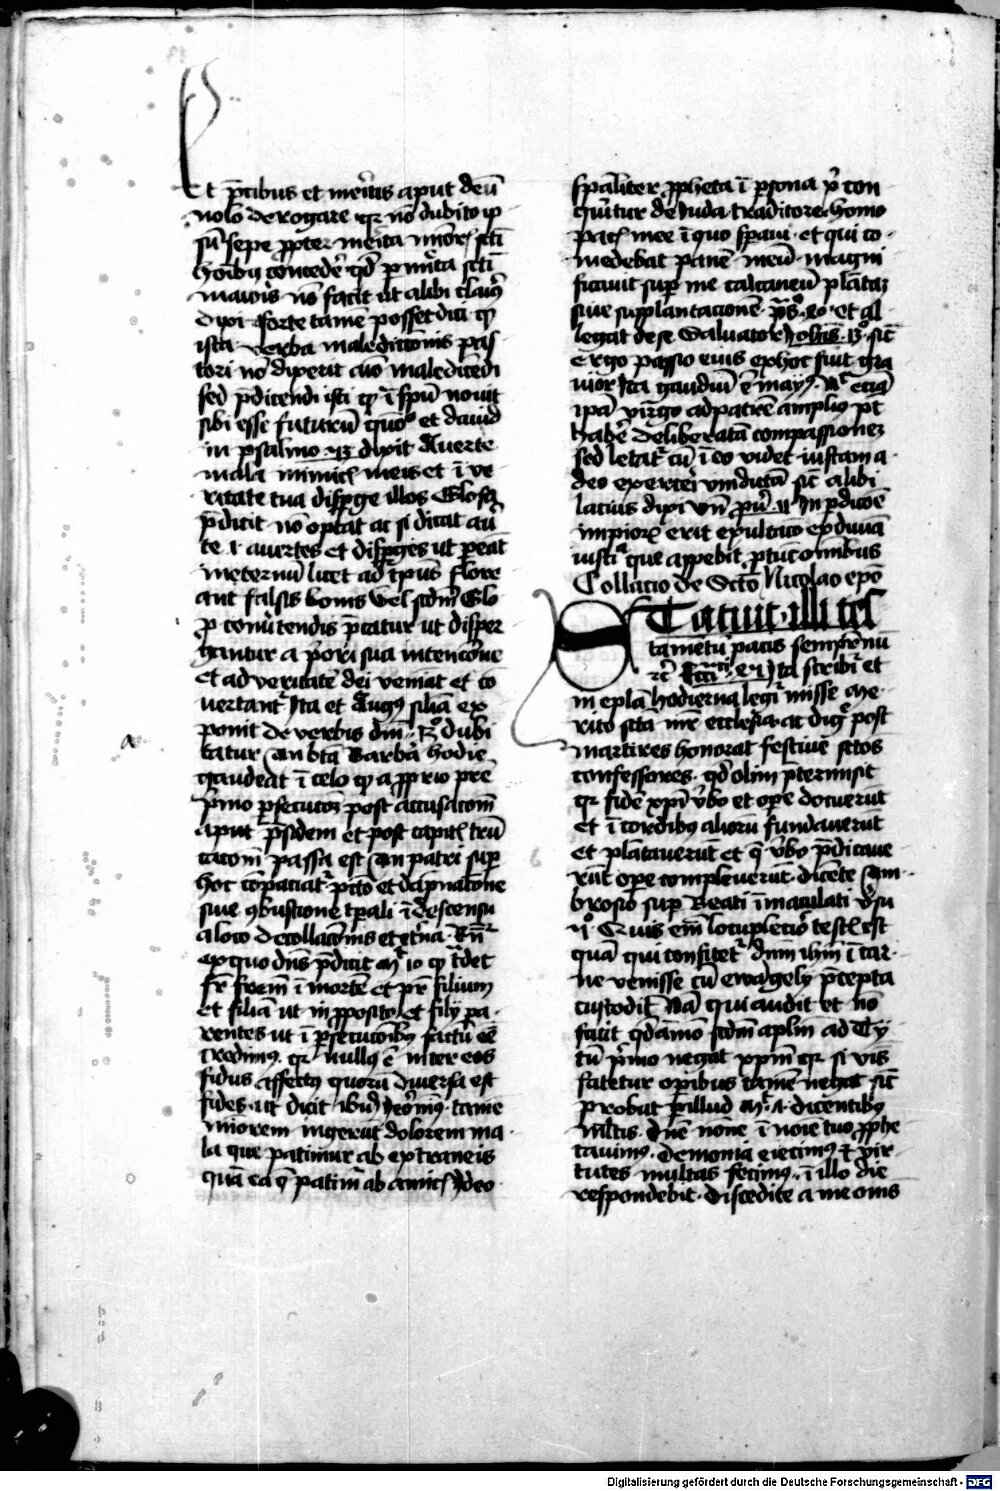 Et p̄cibus et merītis aput deū
nolo derogare qr nō dubito ip
sū sepe ꝓpter merita minorꝝ scti
hoībꝰ concedē qd̄ ꝑ merita scti
maioris nō facit ut alibi
dixi forte tamē posset dici ꝙ
ista verba maledictionis pas
tori nō dixerit aīo maledicēdi
sed p̄dicendi isti ꝙ ī spū nouit
sibi esse futurū quō et dauid
in psalmo dixit Auerte
mala inimicꝭ meis et ī ve
ritate tua disꝑge illos Glosa
p̄dicit nō optat ac si dicat
te auertes et disꝑges ut ꝑeāt
ineternū licet ad tp̄us flore
ant falsis bonis vel scdm̄ Glo
ꝓ conūtendis p̄catur ut disper
gantur a p̄ori sua intencōne
et ad veritatē dei veniāt et cō
uertant̄ Ita et Augꝰ
ponit de verbis dn̄i dubi
tatur An bt̄a Barbā hodie
gaudeat ī celo ꝙ a ꝓprio
p̄mo ꝑsecutoꝝ post accusacōm̄
aput p̄sidem et post capitꝭ trū
cacōm̄ passa est An patri suꝑ
hoc cōpaciat̄ pctō et dāpnatione
siue ꝯbustione tꝑali ī descensu
a loco decollacōnis et et̄na Rn̄r
ex quo dn̄s p̄dicit mr̄ 10 ꝙ t̄det
fr̄ frēm ī mortē et pr̄ filium
et filiā ut in ꝓposito et filij pa
rentes ut ī ꝑsecutoribꝰ factū eē
credimꝰ qr nullꝰ ē inter eos
fidus affectꝰ quorū diuersa est
fides ut dicit ibid̄ Ieōnimꝰ tamē
miorem ingerūt dolorem ma
la que patimur ab extraneis
quā ea q̄ patim̄ ab amicꝭ Ideo
sp̄aliter ꝓpheta ī ꝑsona xp̄i con
q̄ritur de Iuda traditore homo
pacꝭ mee ī quo sꝑaui et qui co
medebat panē meū magni
ficauit suꝑ me calcaneū
siue supplantacionē ps̄ 40 et al
legat de se Saluator Iohīs 13 sic̄
ergo passio eius ex hoc fuit gra
uior Ita gaudiū ē maiꝰ Nc̄ etiā
ipā virgo ad patrē amplius pt̄
habē deliberatā compassionē
sed letat̄ cū ī eo videt iustam a
deo exerceri vindictā sic̄ alibi
lacius dixi vn̄ prou 11 In ꝑdicōe
impiorꝝ erit exultacō ex diuīa
iusticia que appebit ꝑtūc omībus
Collatio de Sctō Nicolao epō
STatuit illi tes
tamētū pacis semꝑrnū
Ita scribit̄ et
in epl̄a hodierna legit̄ misse Me
rito scta mr̄ ecclesia ac digē post
martires honorat festiue sctōs
confessores qd̄ olim p̄termisit
qr fidē xpī v̄bo et oꝑe docuerūt
et ī cordibꝰ aliorū fundauerūt
et plātauerūt et q̄ v̄bo p̄dicaue
rūt oꝑe compleuerūt dicēte Am
brosio suꝑ Beati īmaculati v̄su
Cuius em̄ locupletiō testꝭ est
quā qui confitet̄ dn̄m ihm̄ ī car
ne venisse cū ewāgely p̄cepta
custodit Nā qui audit et nō
facit qdāmo scdm apl̄m ad Ty
tū p̄mo negat xp̄m qr si v̄bis
fatetur oꝑibus tamē negat sic̄
probat ꝑ illud mt̄ dicentibꝰ
mltis Dn̄e nōne ī noīe tuo ꝓphe
tauimꝰ demonia eiecimꝰ et vir
tutes multas fecimꝰ ī illo die
respondebit Discedite a me oms
a
Digitalisierung gefördert durch die Deutsche Forschungsgemeinschaft - DFG